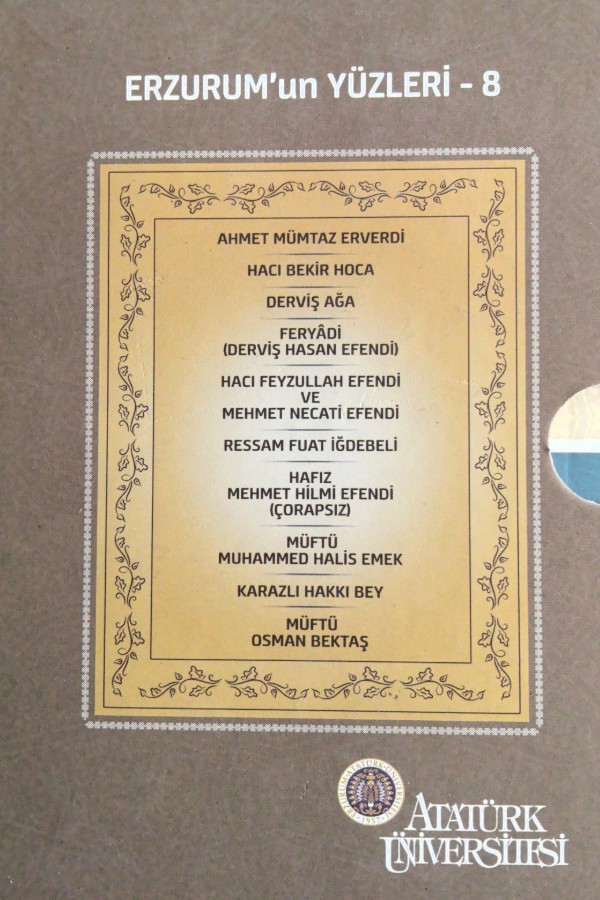 ERZURUM'un YÜZLERİ - 8
AHMET MÜMTAZ ERVERDİ
HACI BEKİR HOCA
DERVİŞ AĞA
FERYÂDİ
(DERVİŞ HASAN EFENDİ)
HACI FEYZULLAH EFENDİ
VE
MEHMET NECATİ EFENDİ
RESSAM FUAT İĞDEBELİ
HAFIZ
MEHMET HİLMİ EFENDİ
(ÇORAPSIZ)
MÜFTÜ
MUHAMMED HALİS EMEK
KARAZLI HAKKI BEY
MÜFTÜ
OSMAN BEKTAŞ
ERZURUM·ATATÜRK·ÜNİVERSİTESİ
1957
ATATÜRK
ÜNİVERSİTESİ